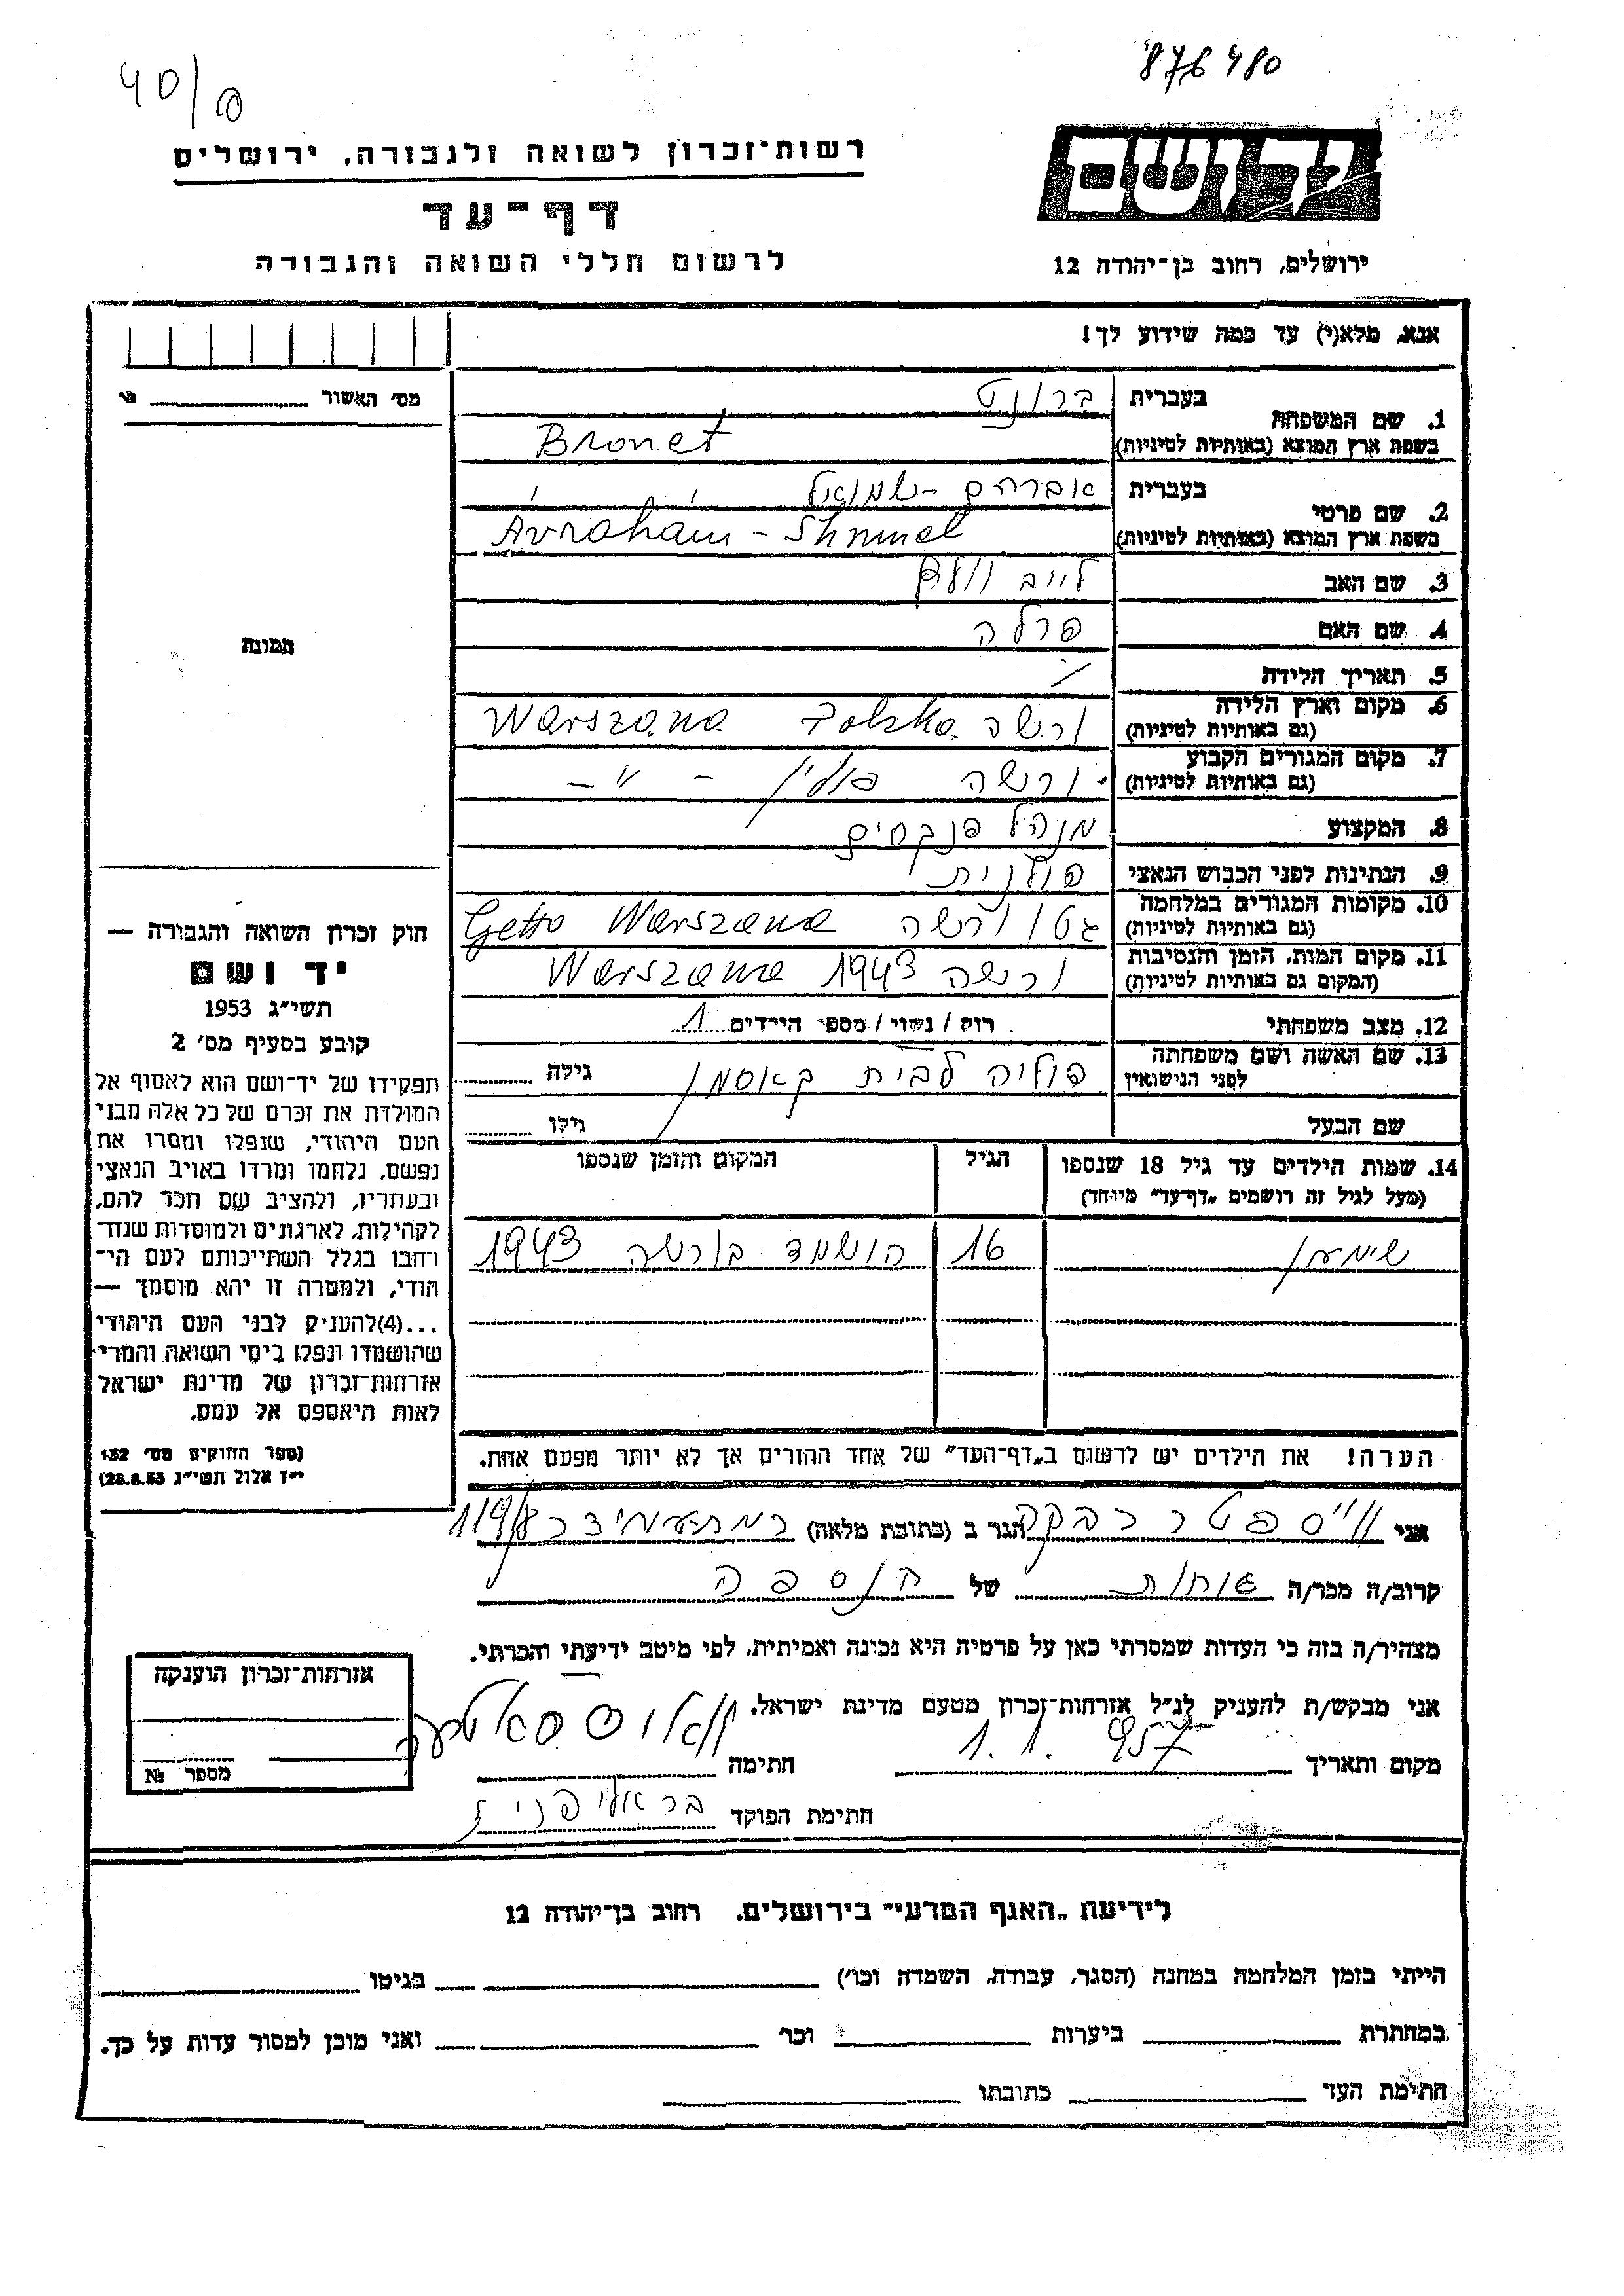 40/0
876480
יד ושם
רשות־זכרון לשואה ולגבורה, ירושלים
דף־עד
לרשום חללי השואה והגבורה
ירושלים, רחוב בן־יהודה 12
אנא, מלא(י) עד כמה שידוע לך!
מס' האשור № 
1. שם המשפחה
בעברית ברונט
בשפת ארץ המוצא (באותיות לטיניות) Bronet
2. שם פרטי
בעברית אברהם - שמואל
בשפת ארץ המוצא (באותיות לטיניות) Avraham - Shmuel
3. שם האב לייב וולף
4. שם האם פרלה
5. תאריך הלידה /
6. מקום וארץ הלידה (גם באותיות לטיניות) ורשה Warszawa Polska
7. מקום המגורים הקבוע (גם באותיות לטיניות) ורשה פולין - " -
8. המקצוע מנהל פנקסים
9. הנתינות לפני הכבוש הנאצי פולנית
10. מקומות המגורים במלחמה (גם באותיות לטיניות) גטו ורשה Getto Warszawa
11. מקום המות, הזמן והנסיבות (המקום גם באותיות לטיניות) ורשה 1943 Warszawa
12. מצב משפחתי רווק / נשוי / מספר הילדים 1
13. שם האשה ושם משפחתה לפני הנישואין לבית קאוסמן גילה
שם הבעל גילו
14. שמות הילדים עד גיל 18 שנספו
(מעל לגיל זה רושמים "דף־עד" מיוחד)
הגיל
המקום והזמן שנספו
שימעון 16 הושמד בורשה 1943
הערה! את הילדים יש לרשום ב"דף־העד" של אחד ההורים אך לא יותר מפעם אחת.
תמונה
חוק זכרון השואה והגבורה —
יד ושם
תשי"ג 1953
קובע בסעיף מס' 2
תפקידו של יד־ושם הוא לאסוף אל
המולדת את זכרם של כל אלה מבני
העם היהודי, שנפלו ומסרו את
נפשם, נלחמו ומרדו באויב הנאצי
ובעוזריו, ולהציב שם וזכר להם,
לקהילות, לארגונים ולמוסדות שנח־
רבו בגלל השתייכותם לעם הי־
הודי, ולמטרה זו יהא מוסמך —
...(4) להעניק לבני העם היהודי
שהושמדו ונפלו בימי השואה והמרי
אזרחות־זכרון של מדינת ישראל
לאות היאספם אל עמם.
(ספר החוקים מס' 132
י"ז אלול תשי"ג 28.8.53)
אני רבקה הגר ב (כתובת מלאה) 119/8
קרוב/ה מכר/ה אחות של הנספה
מצהיר/ה בזה כי העדות שמסרתי כאן על פרטיה היא נכונה ואמיתית, לפי מיטב ידיעתי והכרתי.
אני מבקש/ת להעניק לנ"ל אזרחות־זכרון מטעם מדינת ישראל.
מקום ותאריך 1.1.957 חתימה
חתימת הפוקד
אזרחות־זכרון הוענקה
מספר №
לידיעת "האגף המדעי" בירושלים, רחוב בן־יהודה 12
הייתי בזמן המלחמה במחנה (הסגר, עבודה, השמדה וכו') בגיטו
במחתרת ביערות וכו' ואני מוכן למסור עדות על כך.
חתימת העד כתובתו